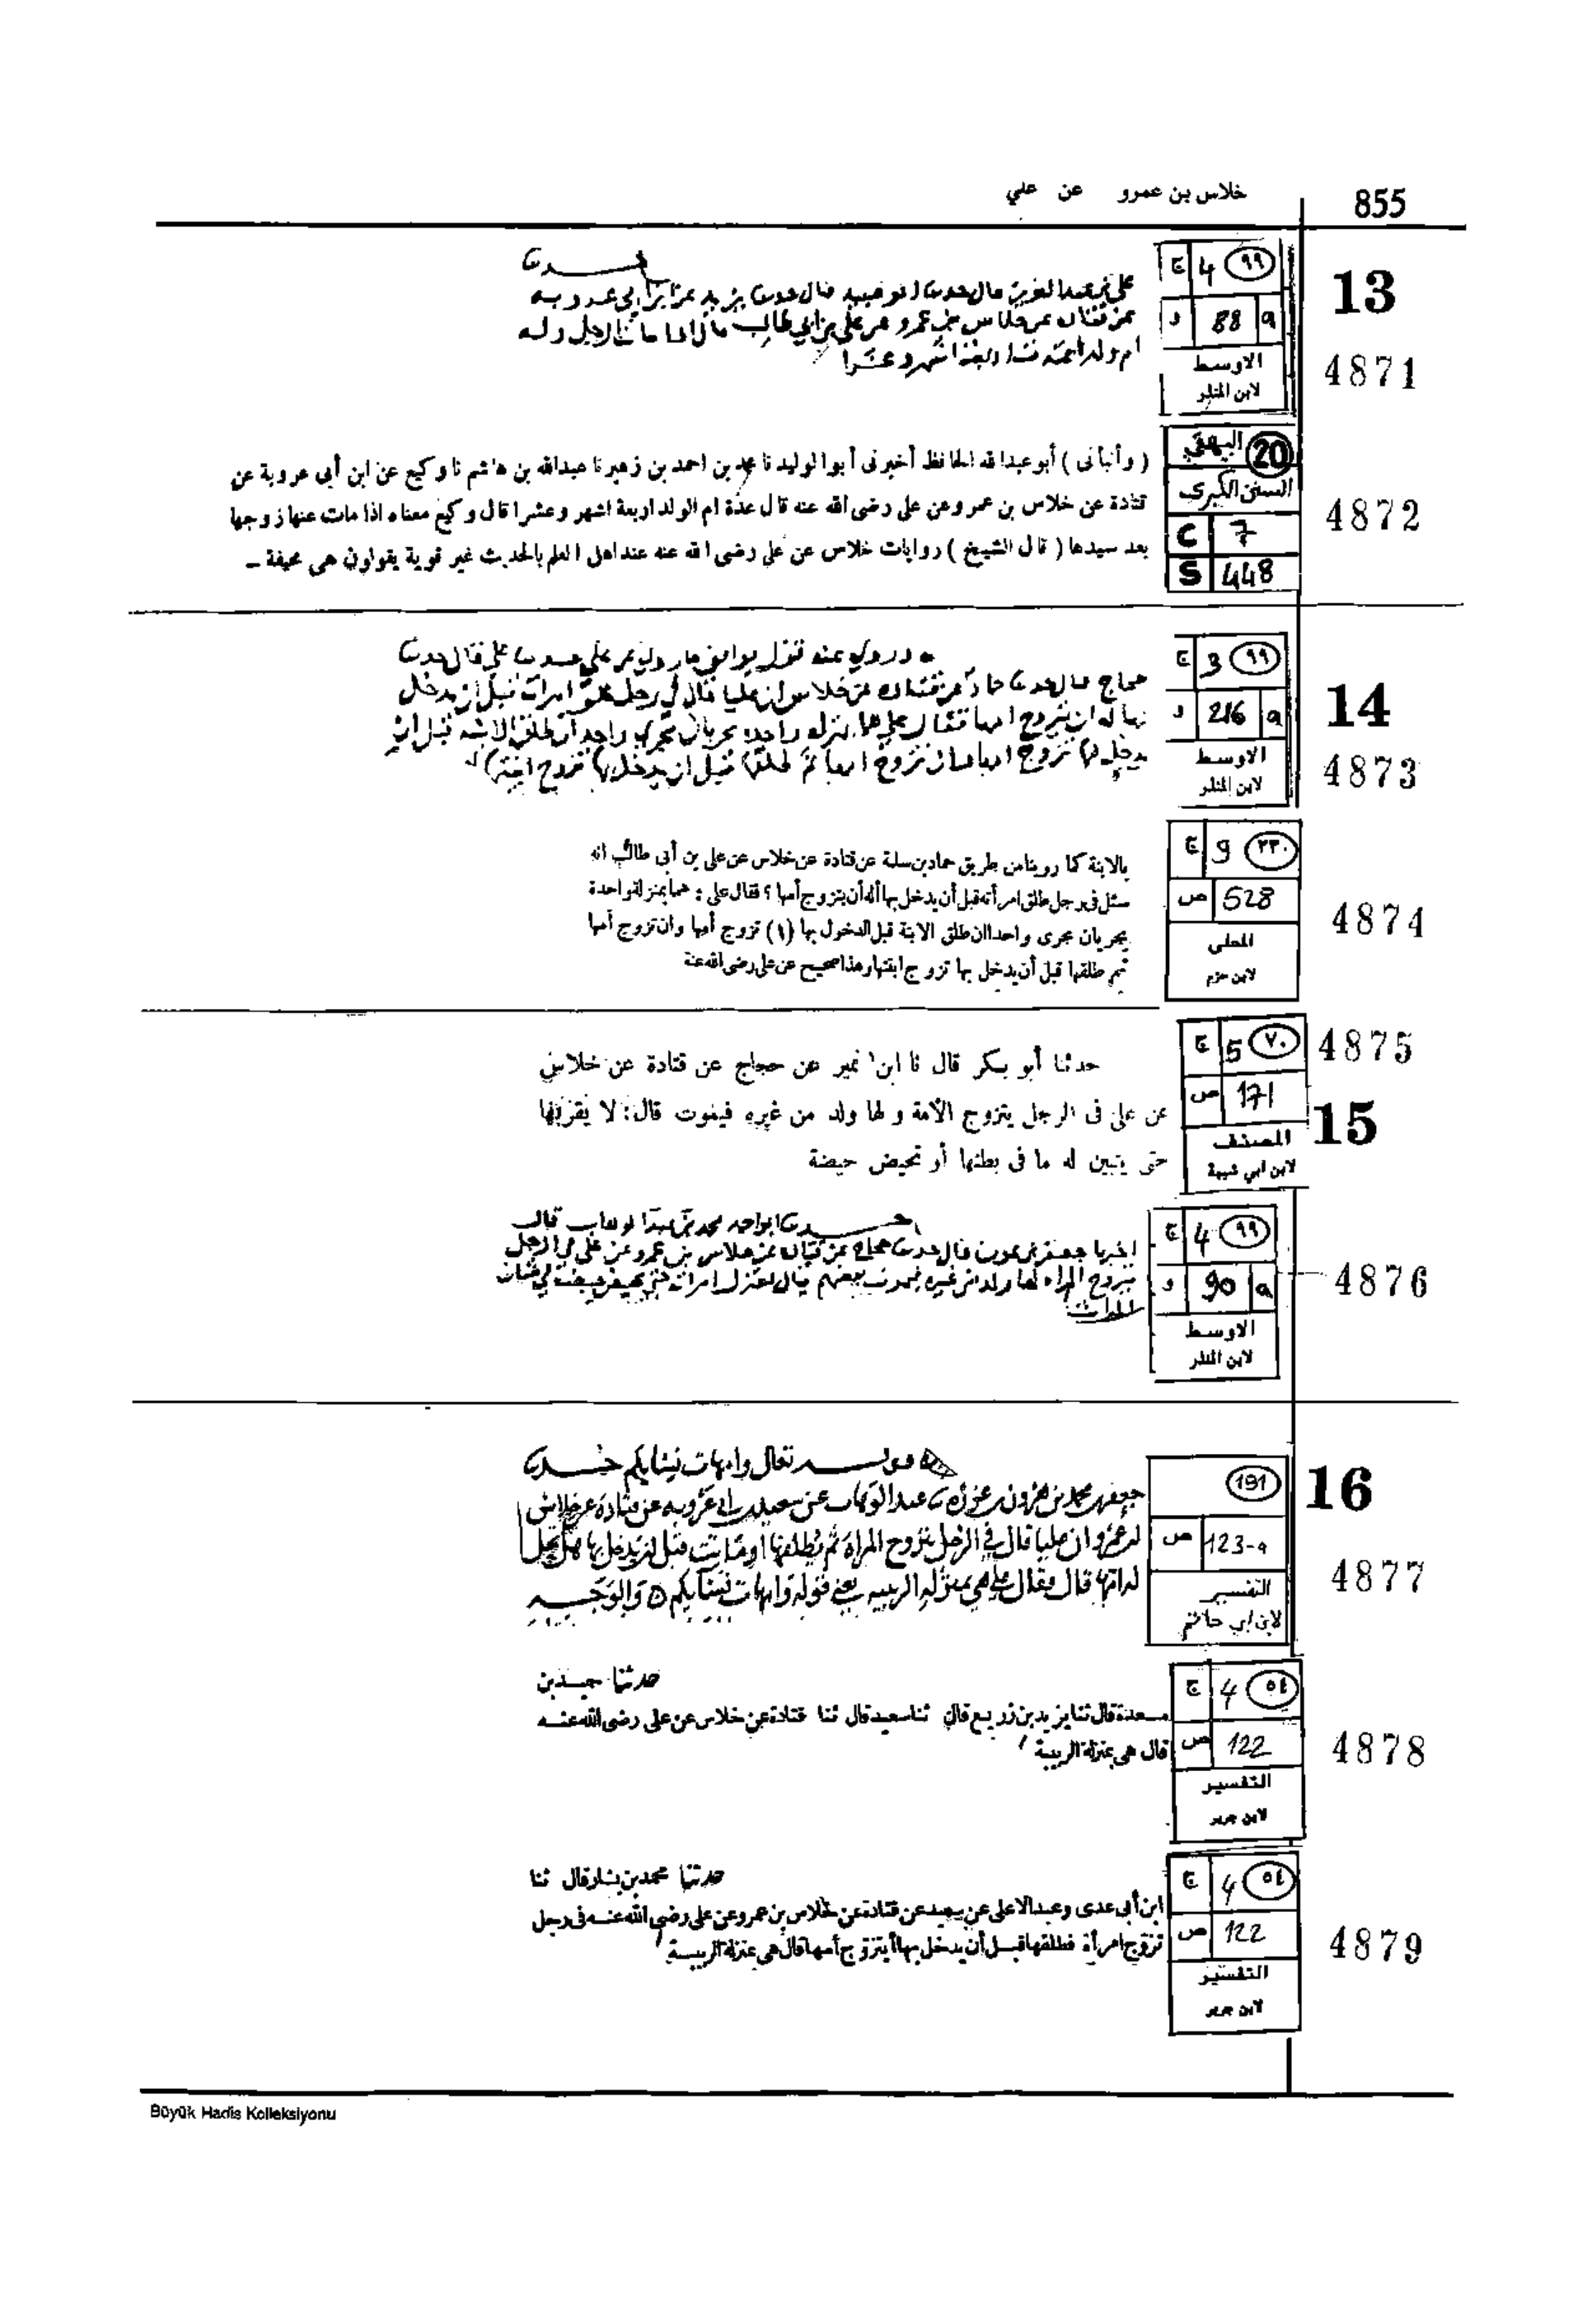 خلاس بن عمرو عن علي
855
13
ج 4 ٩٩
و 88 a
الاوسط
لابن المنذر
4871
حدثنا
علي بن عبدالعزيز قال حدثنا ابو عبيد قال حدثنا يزيد عن ابن ابي عروبه
عن قتاده عن خلاس بن عمرو عن علي بن ابي طالب قال اذا مات الرجل وله
ام ولد اعتدت اربعة اشهر وعشرا
البيهقي 20
السنن الكبرى
C 7
S 448
4872
( وأنبأنى ) أبو عبدالله الحافظ أخبرنى أبو الوليد نا محمد بن احمد بن زهير نا عبدالله بن هاشم نا وكيع عن ابن أبى عروبة عن
قتادة عن خلاس بن عمرو عن على رضى الله عنه قال عدة ام الولد اربعة اشهر وعشرا قال وكيع معناه اذا مات عنها زوجها
بعد سيدها ( قال الشيخ ) روايات خلاس عن على رضى الله عنه عند اهل العلم بالحديث غير قوية يقولون هى صحيفة ــ
ج 3 ٩٩
و 216 a
الاوسط
لابن المنذر
14
4873
وروي عنه قول يوافق ما روي عن علي حدثنا علي قال حدثنا
حجاج قال حدثنا حماد عن قتاده عن خلاس ان عليا قال في رجل طلق امراته قبل ان يدخل
بها اله ان يتزوج امها فقال علي هما بمنزله واحده يجريان مجرى واحد ان طلق الابنه قبل ان
يدخل بها تزوج امها وان تزوج امها ثم طلقها قبل ان يدخل بها تزوج ابنتها
ج 9 ٢٣٠
ص 528
المحلى
لابن حزم
4874
بالابنة كما روينا من طريق حماد بن سلمة عن قتادة عن خلاس عن على بن أبى طالب انه
سئل فى رجل طلق امرأته قبل أن يدخل بها أله أن يتزوج أمها ؟ فقال على : هما بمنزلة واحدة
يجريان مجرى واحدا ان طلق الابنة قبل الدخول بها (١) تزوج أمها وان تزوج أمها
ثم طلقها قبل أن يدخل بها تزوج ابنتها وهذا صحيح عن على رضى الله عنه
ج 5 ٧٠
ص 171
المصنف
لابن ابي شيبة
4875
15
حدثنا أبو بكر قال نا ابن نمير عن حجاج عن قتادة عن خلاس
عن على فى الرجل يتزوج الأمة و لها ولد من غيره فيموت قال: لا يقربها
حتى يتبين له ما فى بطنها أو تحيض حيضة
ج 4 ٩٩
و 90 a
الاوسط
لابن المنذر
4876
حدثنا ابو احمد محمد بن عبدالوهاب قال
اخبرنا جعفر بن عون قال حدثنا حجاج عن قتاده عن خلاس بن عمرو عن علي في الرجل
يتزوج المراه لها ولد من غيره فيموت بعضهم قال يعتزل امراته حتى تحيض حيضة
الميراث
191
ص 123-a
التفسير
لابن ابي حاتم
16
4877
قوله تعالى وامهات نسايكم حدثنا
جعفر بن محمد بن هرون بن عزره ثنا عبد الوهاب عن سعيد بن ابي عروبه عن قتادة عن خلاس
بن عمرو ان عليا قال في الرجل يتزوج المراة ثم يطلقها او ماتت قبل ان يدخل بها هل تحل
له امها قال فقال علي هي بمنزله الربيبه يعني قوله وامهات نسايكم والوجه
ج 4 ٥٤
ص 122
التفسير
لابن جرير
4878
حدثنا حميد بن
مسعدة قال ثنا يزيد بن زريع قال ثنا سعيد قال ثنا قتادة عن خلاس عن على رضى الله عنه
قال هى بمنزلة الربيبة
ج 4 ٥٤
ص 122
التفسير
لابن جرير
4879
حدثنا محمد بن بشار قال ثنا
ابن أبى عدى وعبد الاعلى عن سعيد عن قتادة عن خلاس بن عمرو عن على رضى الله عنه فى رجل
تزوج امرأة فطلقها قبل أن يدخل بها أيتزوج أمها قال هى بمنزلة الربيبة
Büyük Hadis Kolleksiyonu